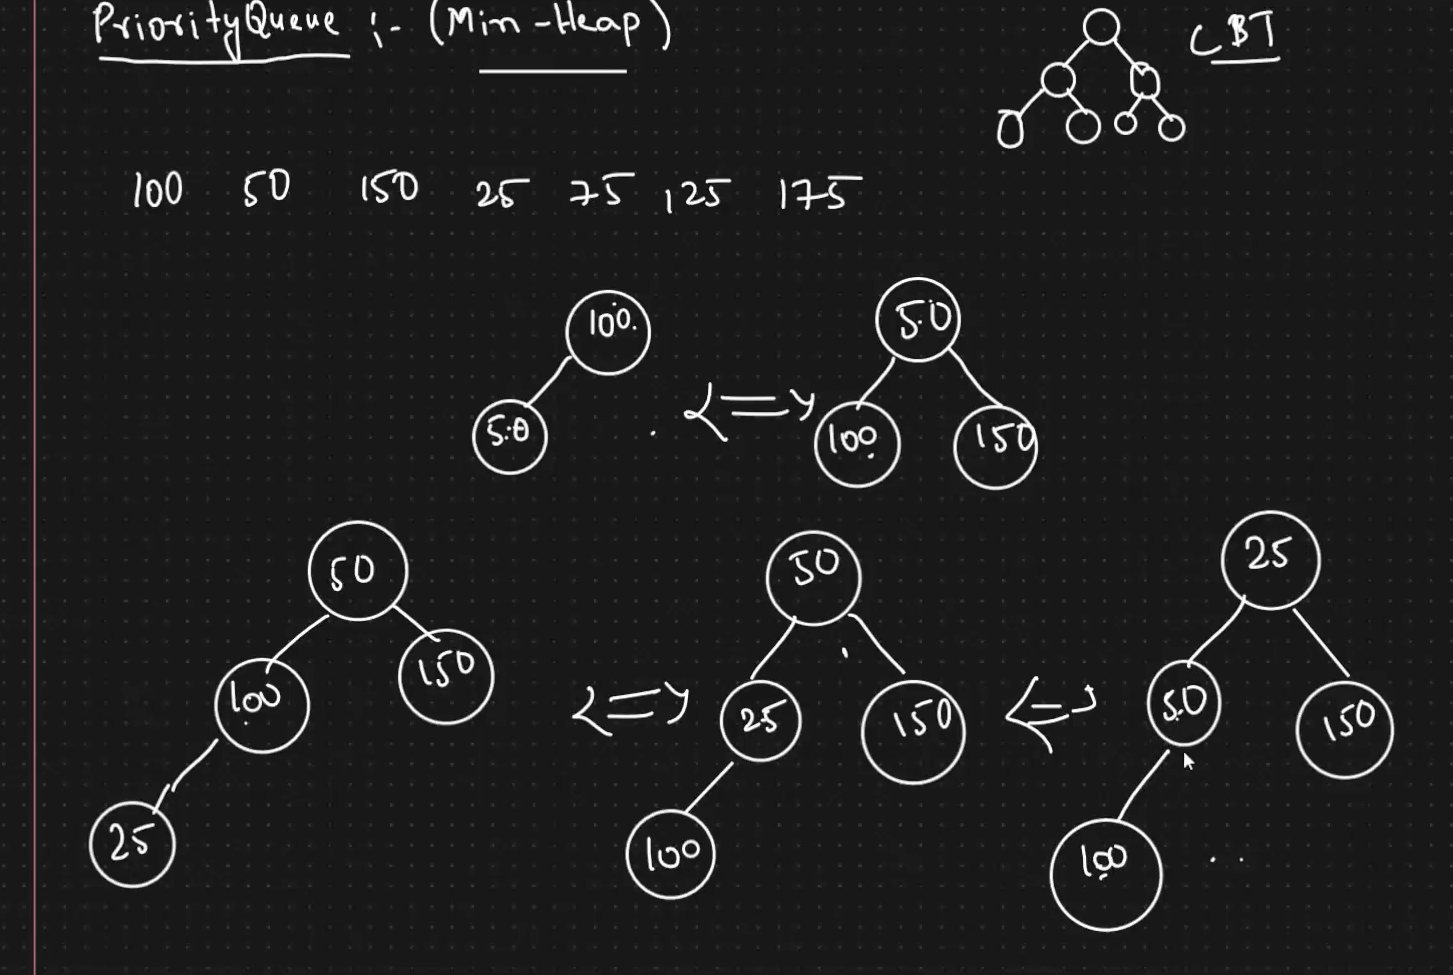 PriorityQueue :- (Min-Heap)
CBT
100 50 150 25 75 125 175
100
50
50
100 150
50
100 150
25
50
25 150
100
25
50 150
100